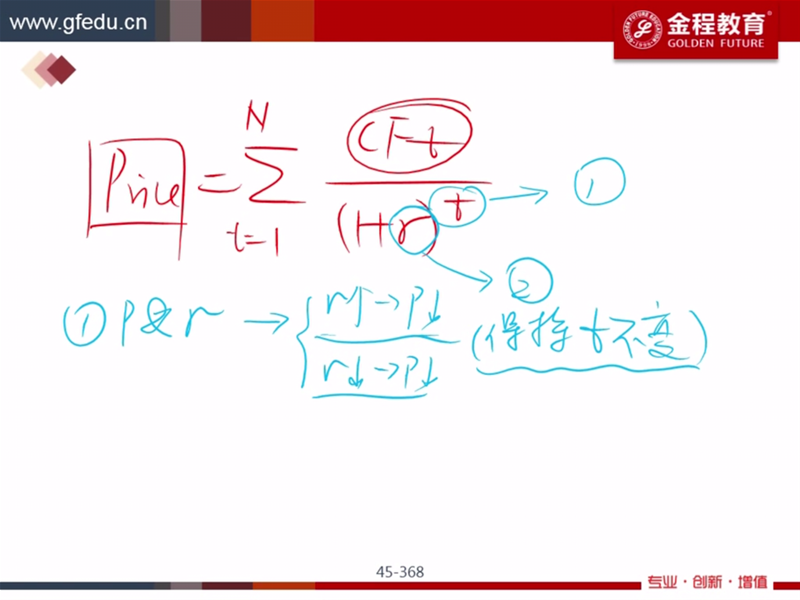 www.gfedu.cn
金程教育®
GOLDEN FUTURE
N
Price = Σ CFt
t=1 (1+r)^t → ①
→ ②
① P & r → { r↑ → P↓
r↓ → P↓ (保持 t 不变)
45-368
专业·创新·增值